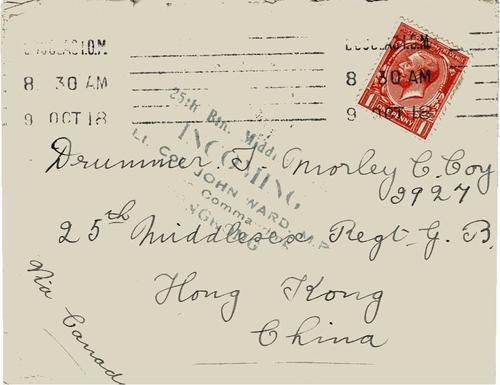 DOUGLAS I.O.M.
8 30 AM
9 OCT 18
DOUGLAS I.O.M.
8 30 AM
9 OCT 18
ONE PENNY
25th Bn. Middx
INCOMING
Lt. Col. JOHN WARD, M.P.
Commanding
HONGKONG
Drummer J Morley C. Coy
3927
25th Middlesex Regt G. B.
Hong Kong
China
Via Canada